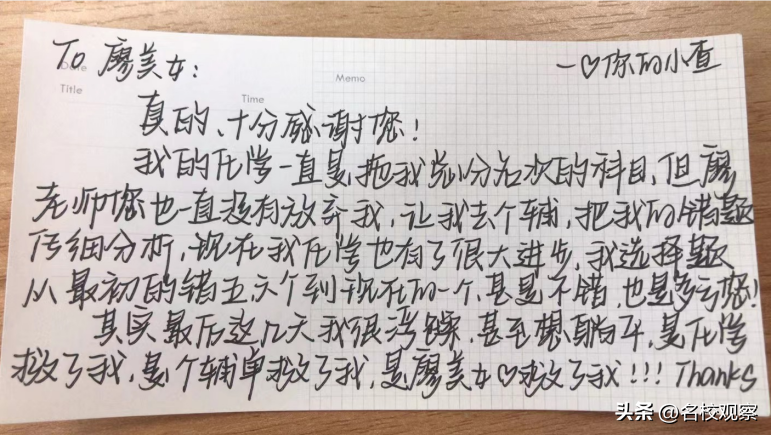 To 廖美女： —♡你的小查
Date
Title Time Memo
真的、十分感谢您！
我的化学一直是拖我总分名次的科目，但廖
老师您也一直没有放弃我，让我去个辅，把我的错题
仔细分析，现在我化学也有了很大进步，我选择题
从最初的错五六个到现在的一个，甚至不错，也是多亏您！
其实最后这几天我很浮躁，甚至想躺平，是化学
拯救了我，是个辅单拯救了我，是廖美女♡拯救了我！！！Thanks
头条 @名校观察